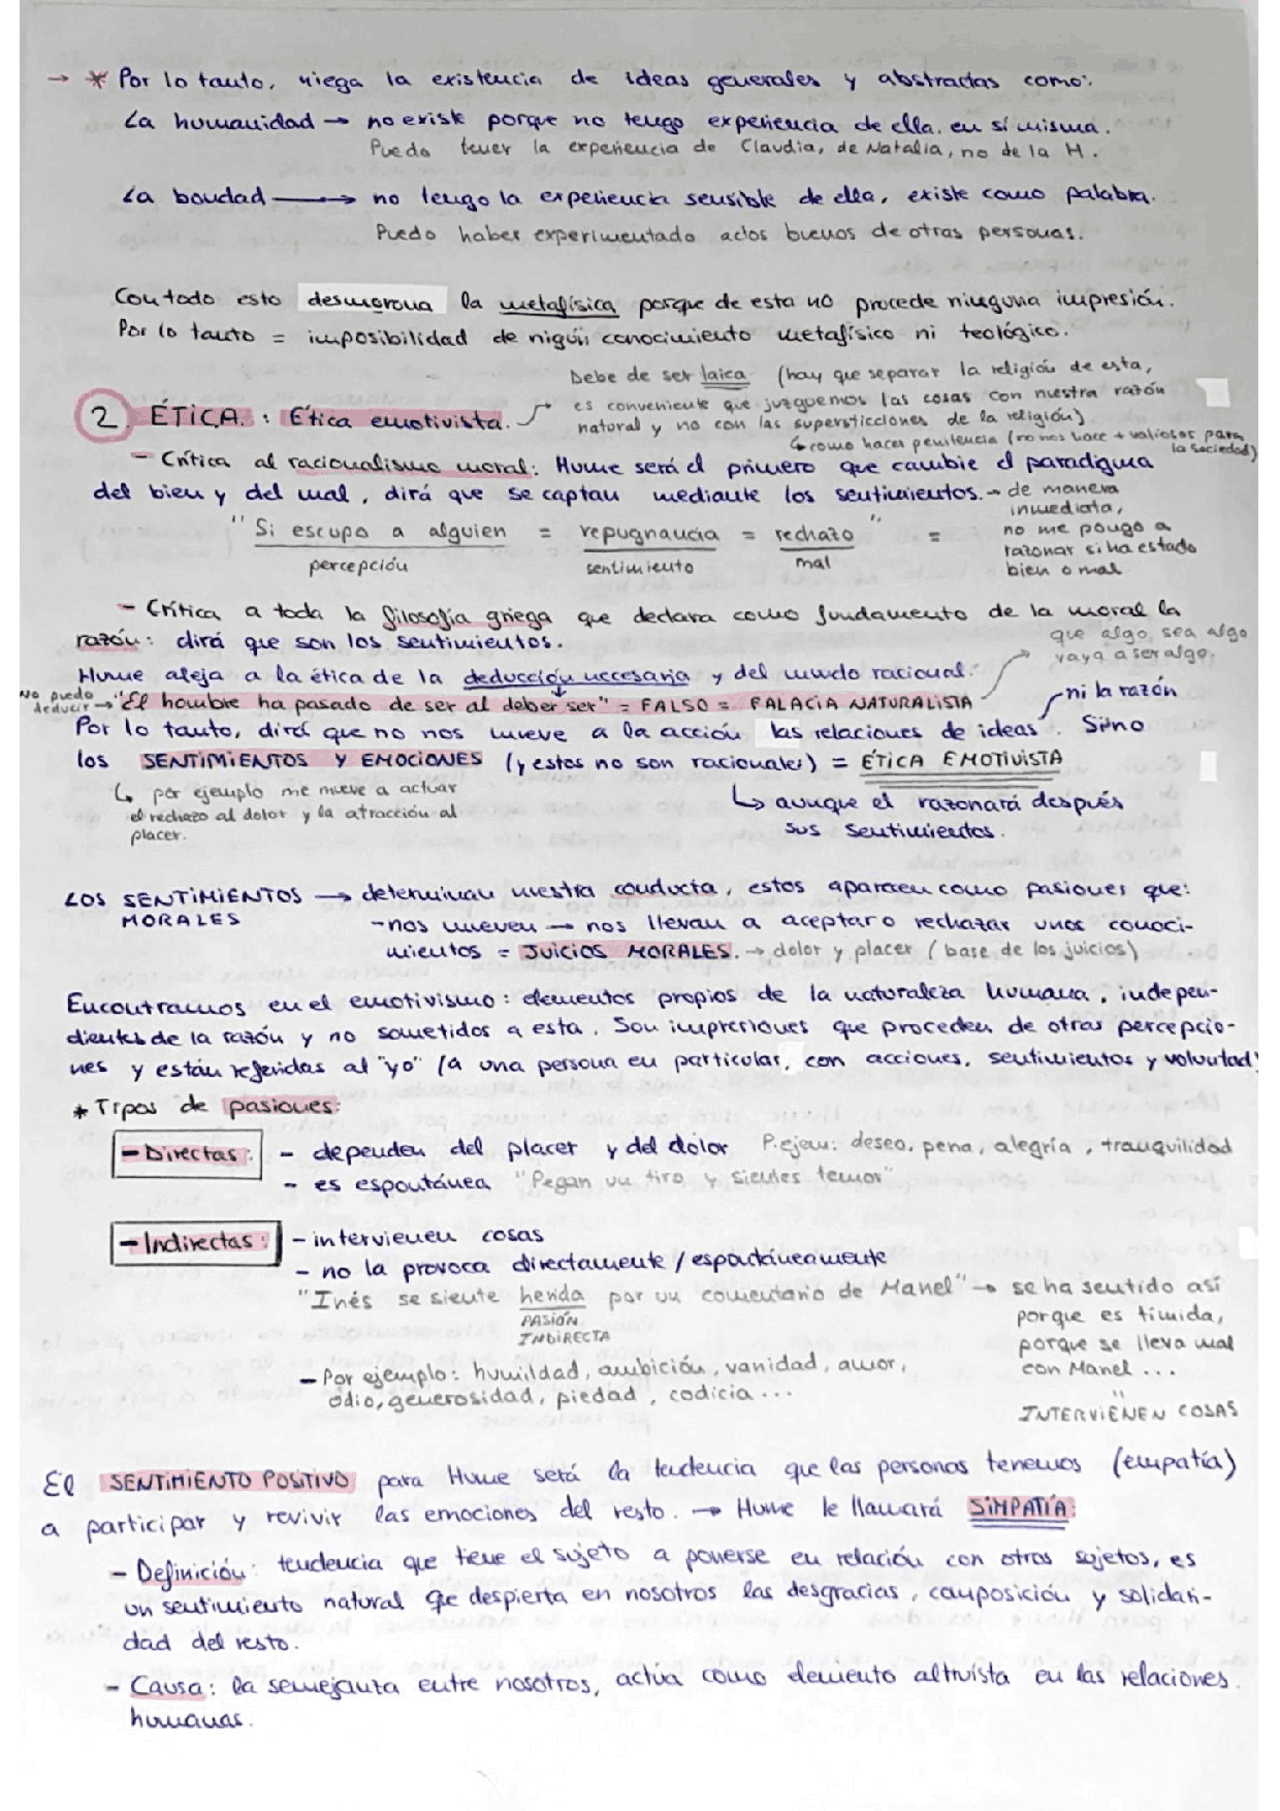 → * Por lo tanto, niega la existencia de ideas generales y abstractas como:
La humanidad → no existe porque no tengo experiencia de ella. en sí misma.
Puedo tener la experiencia de Claudia, de Natalia, no de la H.
La bondad → no tengo la experiencia sensible de ella, existe como palabra.
Puedo haber experimentado actos buenos de otras personas.
Con todo esto desmorona la metafísica porque de esta no procede ninguna impresión.
Por lo tanto = imposibilidad de nigún conocimiento metafísico ni teológico.
Debe de ser laica (hay que separar la religión de esta,
2. ÉTICA. : Ética emotivista. → es conveniente que juzguemos las cosas con nuestra razón
natural y no con las supersticciones de la religión)
↳ como hacer penitencia (no nos hace + valiosos para
la sociedad)
- Crítica al racionalismo moral: Hume será el primero que cambie el paradigma
del bien y del mal, dirá que se captan mediante los sentimientos. → de manera
inmediata,
"Si escupo a alguien = repugnancia = rechazo" = no me pongo a
percepción sentimiento mal razonar si ha estado
bien o mal
- Crítica a toda la filosofía griega que declara como fundamento de la moral la
razón: dirá que son los sentimientos.
que algo sea algo
vaya a ser algo.
Hume aleja a la ética de la deducción necesaria y del mundo racional.
No puedo
deducir → "El hombre ha pasado de ser al deber ser" = FALSO = FALACIA NATURALISTA
Por lo tanto, dirá que no nos mueve a la acción las relaciones de ideas ni la razón. Sino
los SENTIMIENTOS Y EMOCIONES (y estos no son racionales) = ÉTICA EMOTIVISTA
↳ por ejemplo me mueve a actuar
el rechazo al dolor y la atracción al
placer.
↳ aunque el razonará después
sus sentimientos.
LOS SENTIMIENTOS → determinan nuestra conducta, estos aparecen como pasiones que:
MORALES - nos mueven → nos llevan a aceptar o rechazar unos conoci-
mientos = JUICIOS MORALES. → dolor y placer (base de los juicios)
Encontramos en el emotivismo: elementos propios de la naturaleza humana, indepen-
dientes de la razón y no sometidos a esta. Son impresiones que proceden de otras percepcio-
nes y están referidas al "yo" (a una persona en particular, con acciones, sentimientos y voluntad)
* Tipos de pasiones:
- Directas: - dependen del placer y del dolor P.ejem: deseo, pena, alegría, tranquilidad
- es espontánea "Pegan un tiro y sientes temor"
- Indirectas: - intervienen cosas
- no la provoca directamente / espontáneamente
"Inés se siente herida por un comentario de Manel" → se ha sentido así
PASIÓN
INDIRECTA
porque es tímida,
porque se lleva mal
con Manel ...
"
INTERVIENEN COSAS
- Por ejemplo: humildad, ambición, vanidad, amor,
odio, generosidad, piedad, codicia...
El SENTIMIENTO POSITIVO para Hume será la tendencia que las personas tenemos (empatía)
a participar y revivir las emociones del resto. → Hume le llamará SIMPATÍA:
- Definición: tendencia que tiene el sujeto a ponerse en relación con otros sujetos, es
un sentimiento natural que despierta en nosotros las desgracias, composición y solidari-
dad del resto.
- Causa: la semejanza entre nosotros, actúa como elemento altruista en las relaciones
humanas.